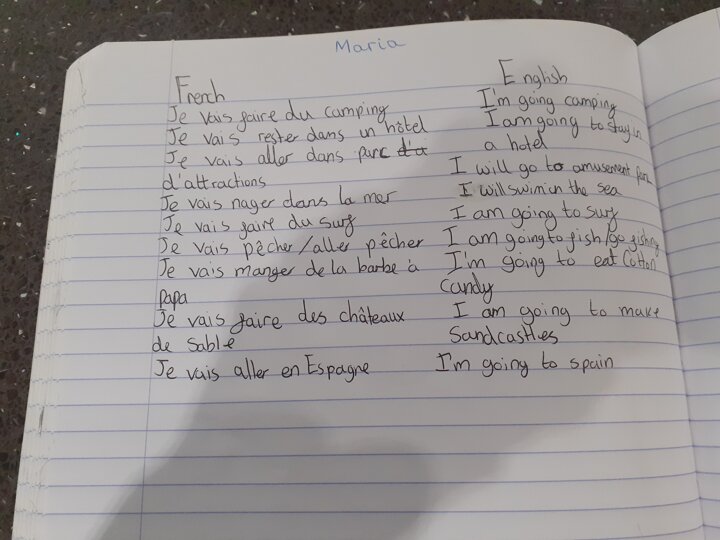 Maria
French English
Je vais faire du camping I'm going camping
Je vais rester dans un hôtel I am going to stay in
Je vais aller dans parc d'a a hotel
d'attractions I will go to amusement park
Je vais nager dans la mer I will swim in the sea
Je vais faire du surf I am going to surf
Je vais pêcher/aller pêcher I am going to fish/go fishing
Je vais manger de la barbe à I'm going to eat Cotton
papa Candy
Je vais faire des châteaux I am going to make
de Sable Sandcastles
Je vais aller en Espagne I'm going to spain